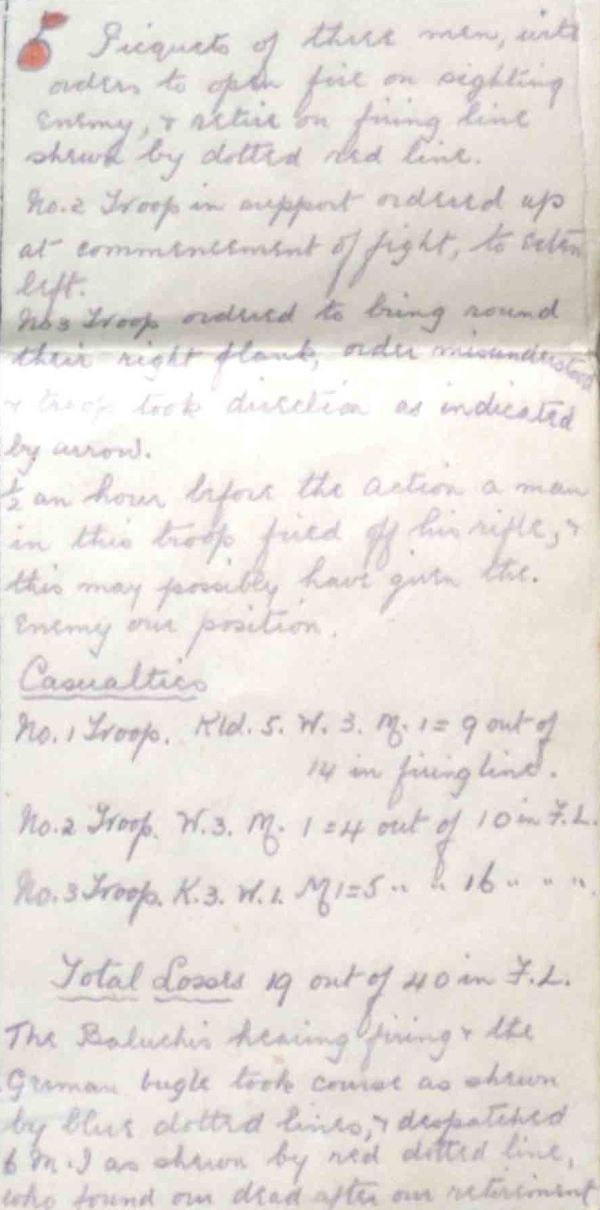 Picquets of three men, with
orders to open fire on sighting
Enemy, & retire on firing line
shewn by dotted red line.
No. 2 Troop in support ordered up
at commencement of fight, to exten
left.
No 3 Troop ordered to bring round
their right flank, order misunderstood
& troop took direction as indicated
by arrow.
½ an hour before the action a man
in this troop fired off his rifle, &
this may possibly have given the.
Enemy our position.
Casualties
No. 1 Troop. Kld. 5. W. 3. M. 1 = 9 out of
14 in firing line.
No. 2 Troop. W. 3. M. 1 = 4 out of 10 in F.L.
No. 3 Troop. K. 3. W. 1. M 1 = 5 " " 16 " " ".
Total Losses 19 out of 40 in F.L.
The Baluchis hearing firing & the
German bugle took course as shewn
by blue dotted lines, & despatched
6 M.I as shewn by red dotted line,
who found our dead after our retirement